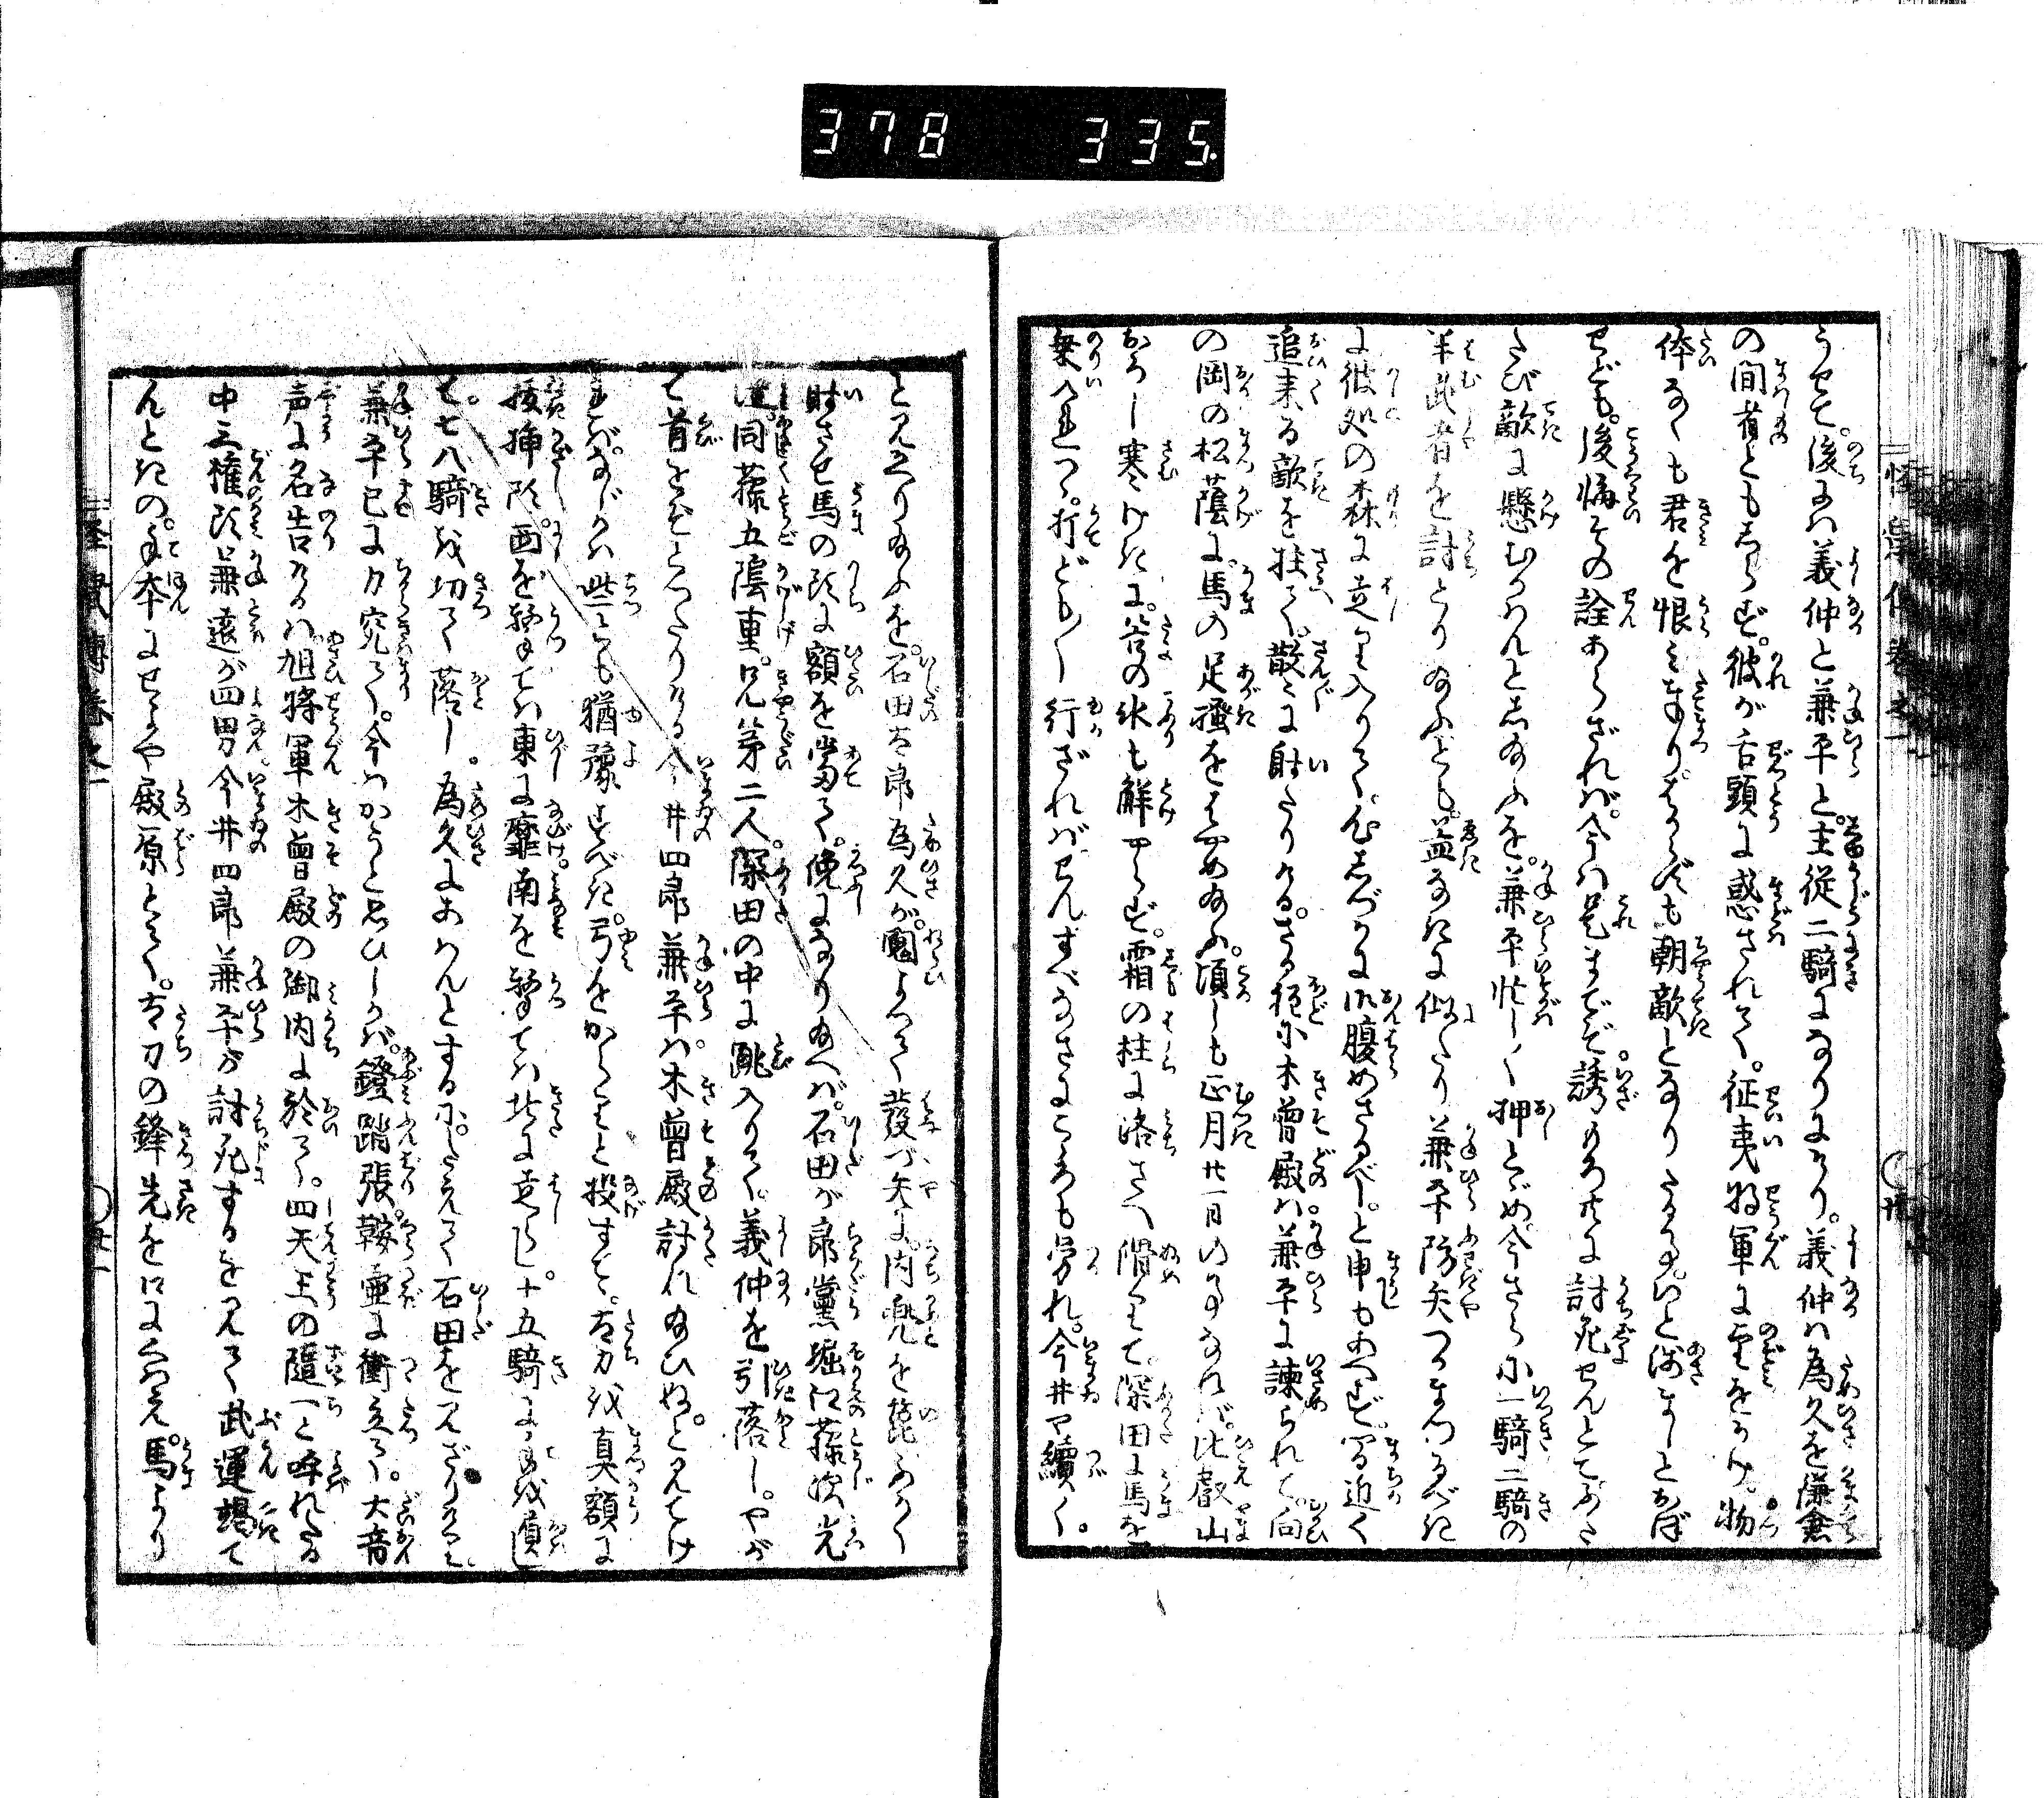 378 335
うせて。後には義仲と兼平と。主従二騎になりにけり。義仲は為久を鎌倉
の間者ともしらず。彼が舌頭に惑されて。征夷将軍に望をかけ。物
体なくも君を恨み奉り。はからずも朝敵となりたる事。いと浅ましとおぼ
せども。後悔その詮あらざれば。今は是までぞ。誘りろ共に討死せんとてふた
たび敵に懸むかはんとし給ふを。兼平忙しく押とゞめ。今さらに一騎二騎の
半武者を討とり給ふとも。益なきに似たり。兼平防矢つかまつるべき
に彼処の森に走り入りて。心しづかに御腹めさるべし。と申もあへず。間近く
追来る敵を拄て。散々に射たりける。さる程に木曽殿は。兼平に諫られて。向
の岡の松蔭に。馬の足掻をはやめ給ふ。頃しも正月廿一日の事なれば。比叡山
おろし寒けきに。谷の氷も解やらず。霜の柱に洛さへ滑りて。深田に馬を
乗入れつゝ。打ども〳〵行ざればせんすべなさにこゝろも労れ。今井や続く。
と見かへり給ふを。石田太郎為久が。窺よつて発つ矢に。内兜を箆ふかく
射させ馬の頭に額を当て。俛になり給へば。石田が郎党堀江藤次光
遠。同藤五蔭重。兄弟二人。深田の中に跳入りて。義仲を引落し。やが
て首をぞとつたりける。今井四郎兼平は。木曽殿討れ給ひぬ。と見てけ
れば。なじかは些も猶豫すべき。弓をからりと投すて。太刀を真額に
挿頭。西を撃ては東に靡け。南を撃ては北に走らし。十五騎に手を負し
て。七八騎を切て落し。為久にあはんとするに。たえて石田を見ざりけり。
兼平已に力究て。今はかうと思ひしかば。鐙踏張。鞍壷に衝立て。大音
声に名告けるは。旭将軍木曽殿の御内に於て。四天王の随一と呼れたる
中三権頭兼遠が四男今井四郎兼平が討死するを見て武運竭て
んときの。手本にせよや殿原とて。太刀の鋒先を口にくはえ。馬より